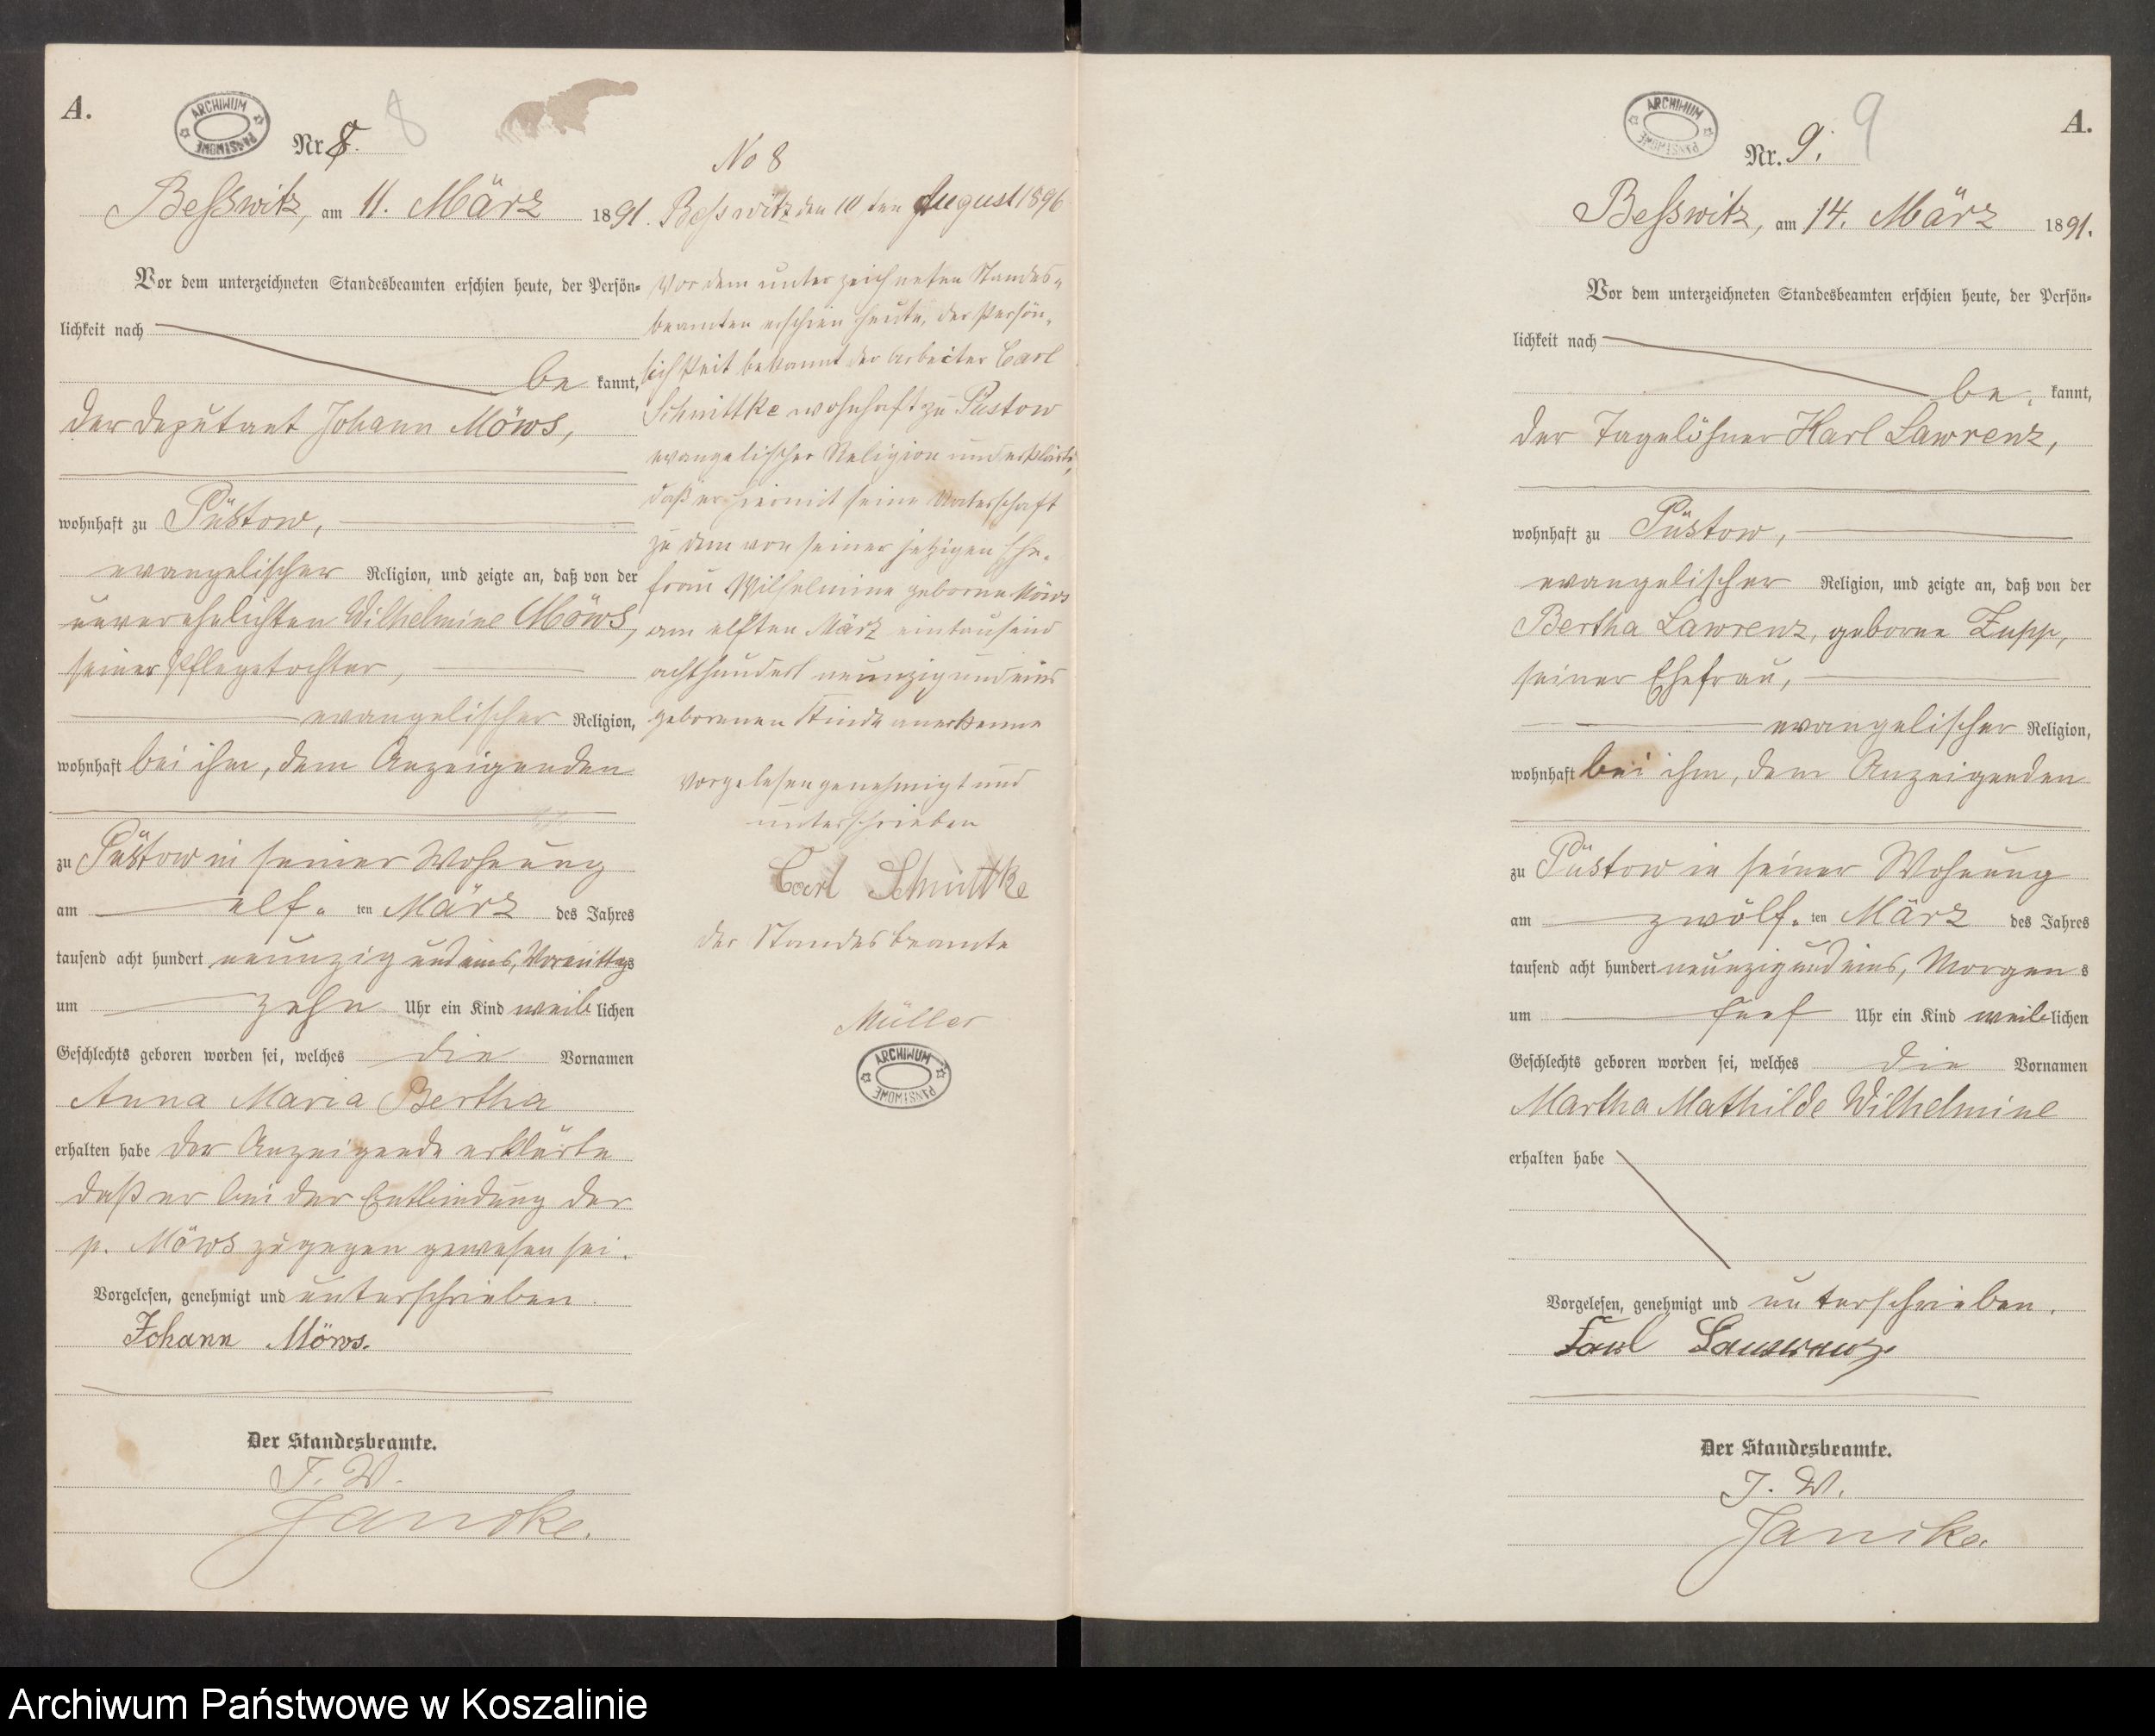 A.
ARCHIWUM PAŃSTWOWE
Nr. 8. 8
Beßwitz, am 11. März 1891.
Vor dem unterzeichneten Standesbeamten erschien heute, der Persön-
lichkeit nach
be kannt,
der Deputant Johann Möws,
wohnhaft zu Püstow,
evangelischer Religion, und zeigte an, daß von der
unverehelichten Wilhelmine Möws,
seiner Pflegetochter,
evangelischer Religion,
wohnhaft bei ihm, dem Anzeigenden
zu Püstow in seiner Wohnung
am elf-ten März des Jahres
tausend acht hundert neunzig und eins, Vormittags
um zehn Uhr ein Kind weiblichen
Geschlechts geboren worden sei, welches die Vornamen
Anna Maria Bertha
erhalten habe der Anzeigende erklärte
daß er bei der Entbindung der
p. Möws zugegen gewesen sei.
Vorgelesen, genehmigt und unterschrieben.
Johann Möws.
Der Standesbeamte.
J. V.
Jancke.
No 8
Beßwitz den 10ten August 1896
Vor dem unterzeichneten Standes-
beamten erschien heute, der Persön-
lichkeit bekannt der Arbeiter Carl
Schnittke wohnhaft zu Pustow
evangelischer Religion und erklärte,
daß er hiermit seine Vaterschaft
zu dem von seiner jetzigen Ehe-
frau Wilhelmine geborene Möws
am elften März eintausend
achthundert neunzig und eins
geborenen Kinde anerkenne
vorgelesen genehmigt und
unterschrieben
Carl Schnittke
der Standesbeamte
Müller
ARCHIWUM PAŃSTWOWE
A.
ARCHIWUM PAŃSTWOWE
Nr. 9. 9
Beßwitz, am 14. März 1891.
Vor dem unterzeichneten Standesbeamten erschien heute, der Persön-
lichkeit nach
be kannt,
der Tagelöhner Karl Lawrenz,
wohnhaft zu Püstow,
evangelischer Religion, und zeigte an, daß von der
Bertha Lawrenz, geborne Zupp,
seiner Ehefrau,
evangelischer Religion,
wohnhaft bei ihm, dem Anzeigenden
zu Püstow in seiner Wohnung
am zwölf-ten März des Jahres
tausend acht hundert neunzig und eins, Morgens
um fünf Uhr ein Kind weiblichen
Geschlechts geboren worden sei, welches die Vornamen
Martha Mathilde Wilhelmine
erhalten habe
Vorgelesen, genehmigt und unterschrieben.
Der Standesbeamte.
J. V.
Jancke.
Archiwum Państwowe w Koszalinie